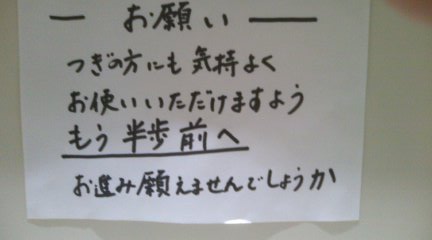 ー お願い ー
つぎの方にも 気持よく
お使いいただけますよう
もう 半歩 前へ
お進み願えませんでしょうか